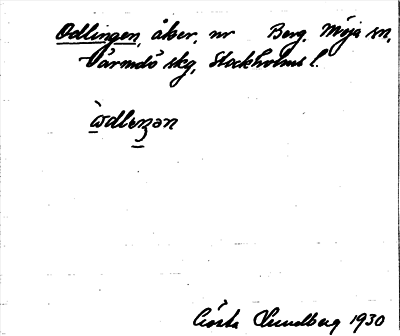 Odlingen, åker, nr Berg, Möja sn,
Värmdö skg, Stockholms l.
ὼdleŋən
Gösta Lundberg 1930